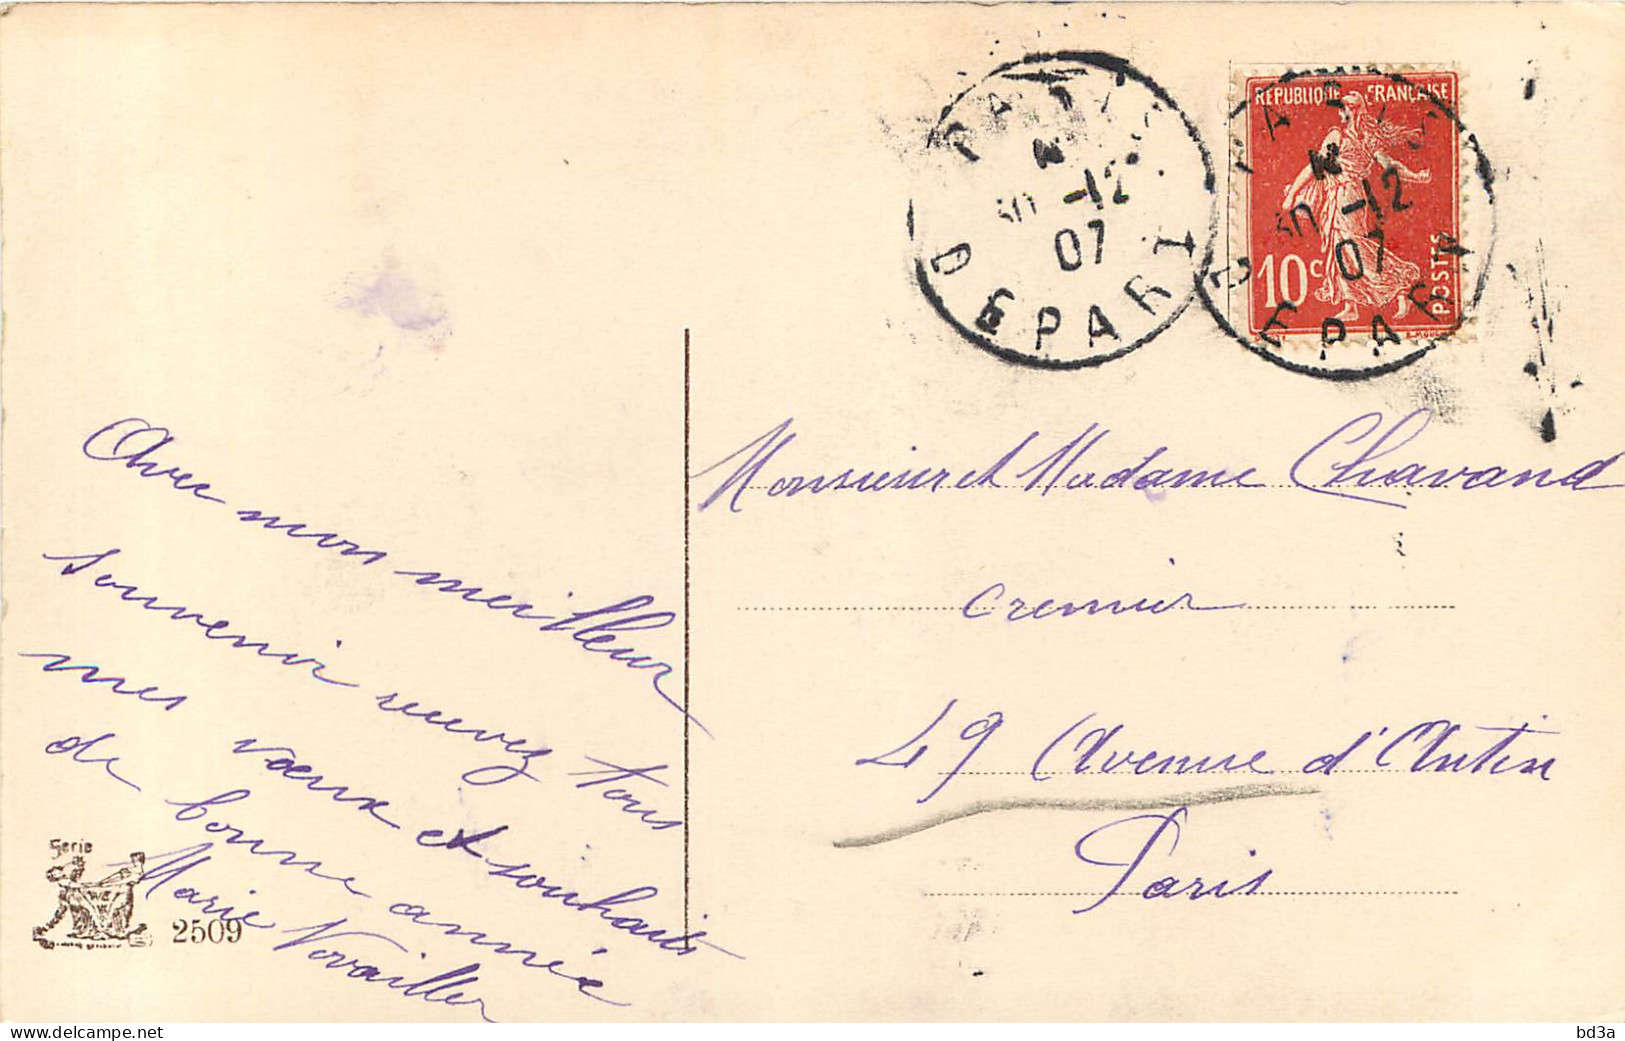 PARIS
30 -12
07
DEPART
REPUBLIQUE FRANÇAISE
10c
POSTES
PARIS
30 -12
07
DEPART
Avec mon meilleur
souvenir recevez tous
mes vœux et souhaits
de bonne année
Marie
Serie
2509
Monsieur et Madame Chavand
cremier
49 Avenue d'Antin
Paris
delcampe.net
bd3a